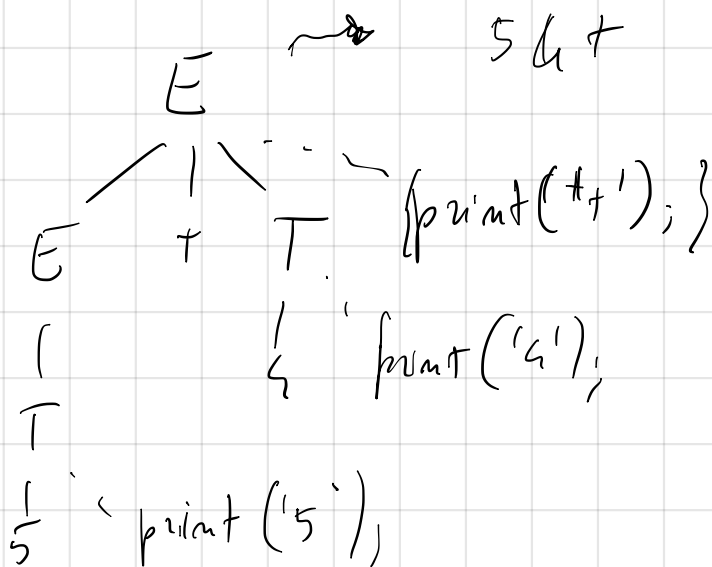 5 4 +
E
{print('+');}
E + T
4 print('4');
T
5 print('5');